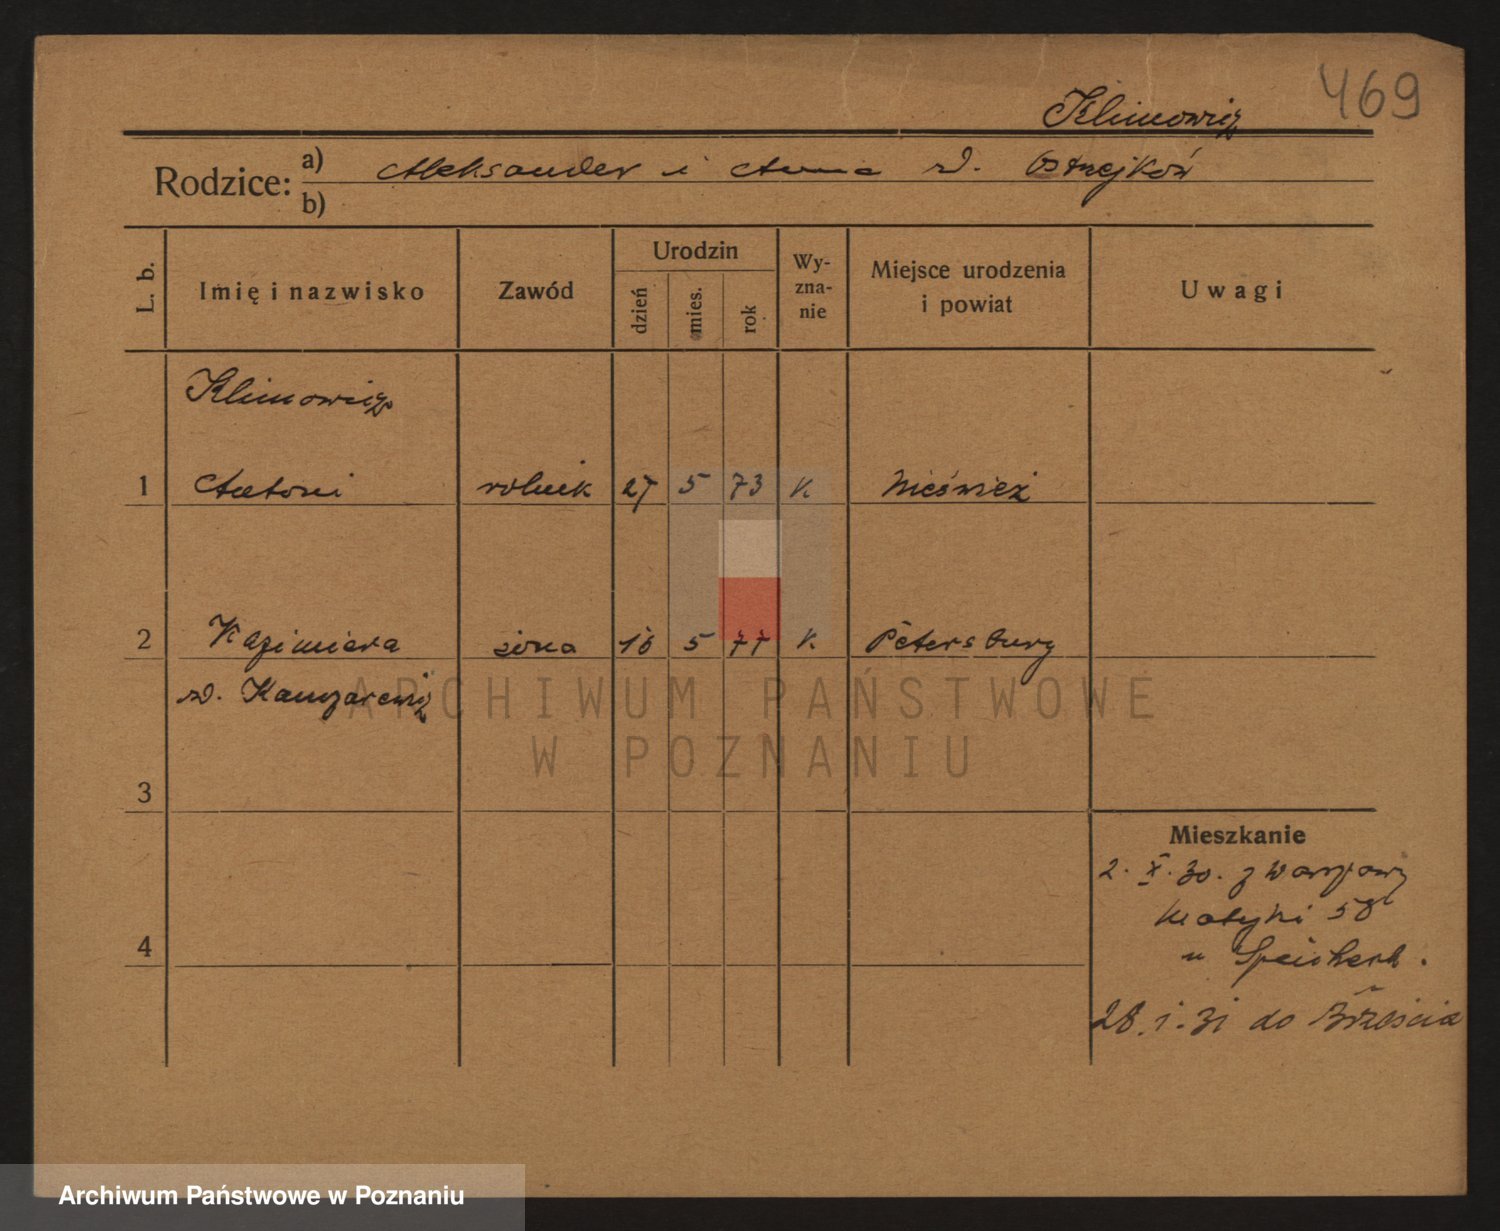 469
Klimowicz
Rodzice: a) Aleksander i Anna d. Ostrejków
b)
L. b. Imię i nazwisko Zawód Urodzin dzień mies. rok Wy-zna-nie Miejsce urodzenia i powiat Uwagi
Klimowicz
1 Antoni rolnik 27 5 73 K Nieśwież
2 Kazimiera żona 16 5 77 K. Petersburg
d.
ARCHIWUM PAŃSTWOWE
W POZNANIU
3
Mieszkanie
2. X. 30. z Warszawy
Matejki 58
4
u Speichert.
28. I. 31 do Brześcia
Archiwum Państwowe w Poznaniu